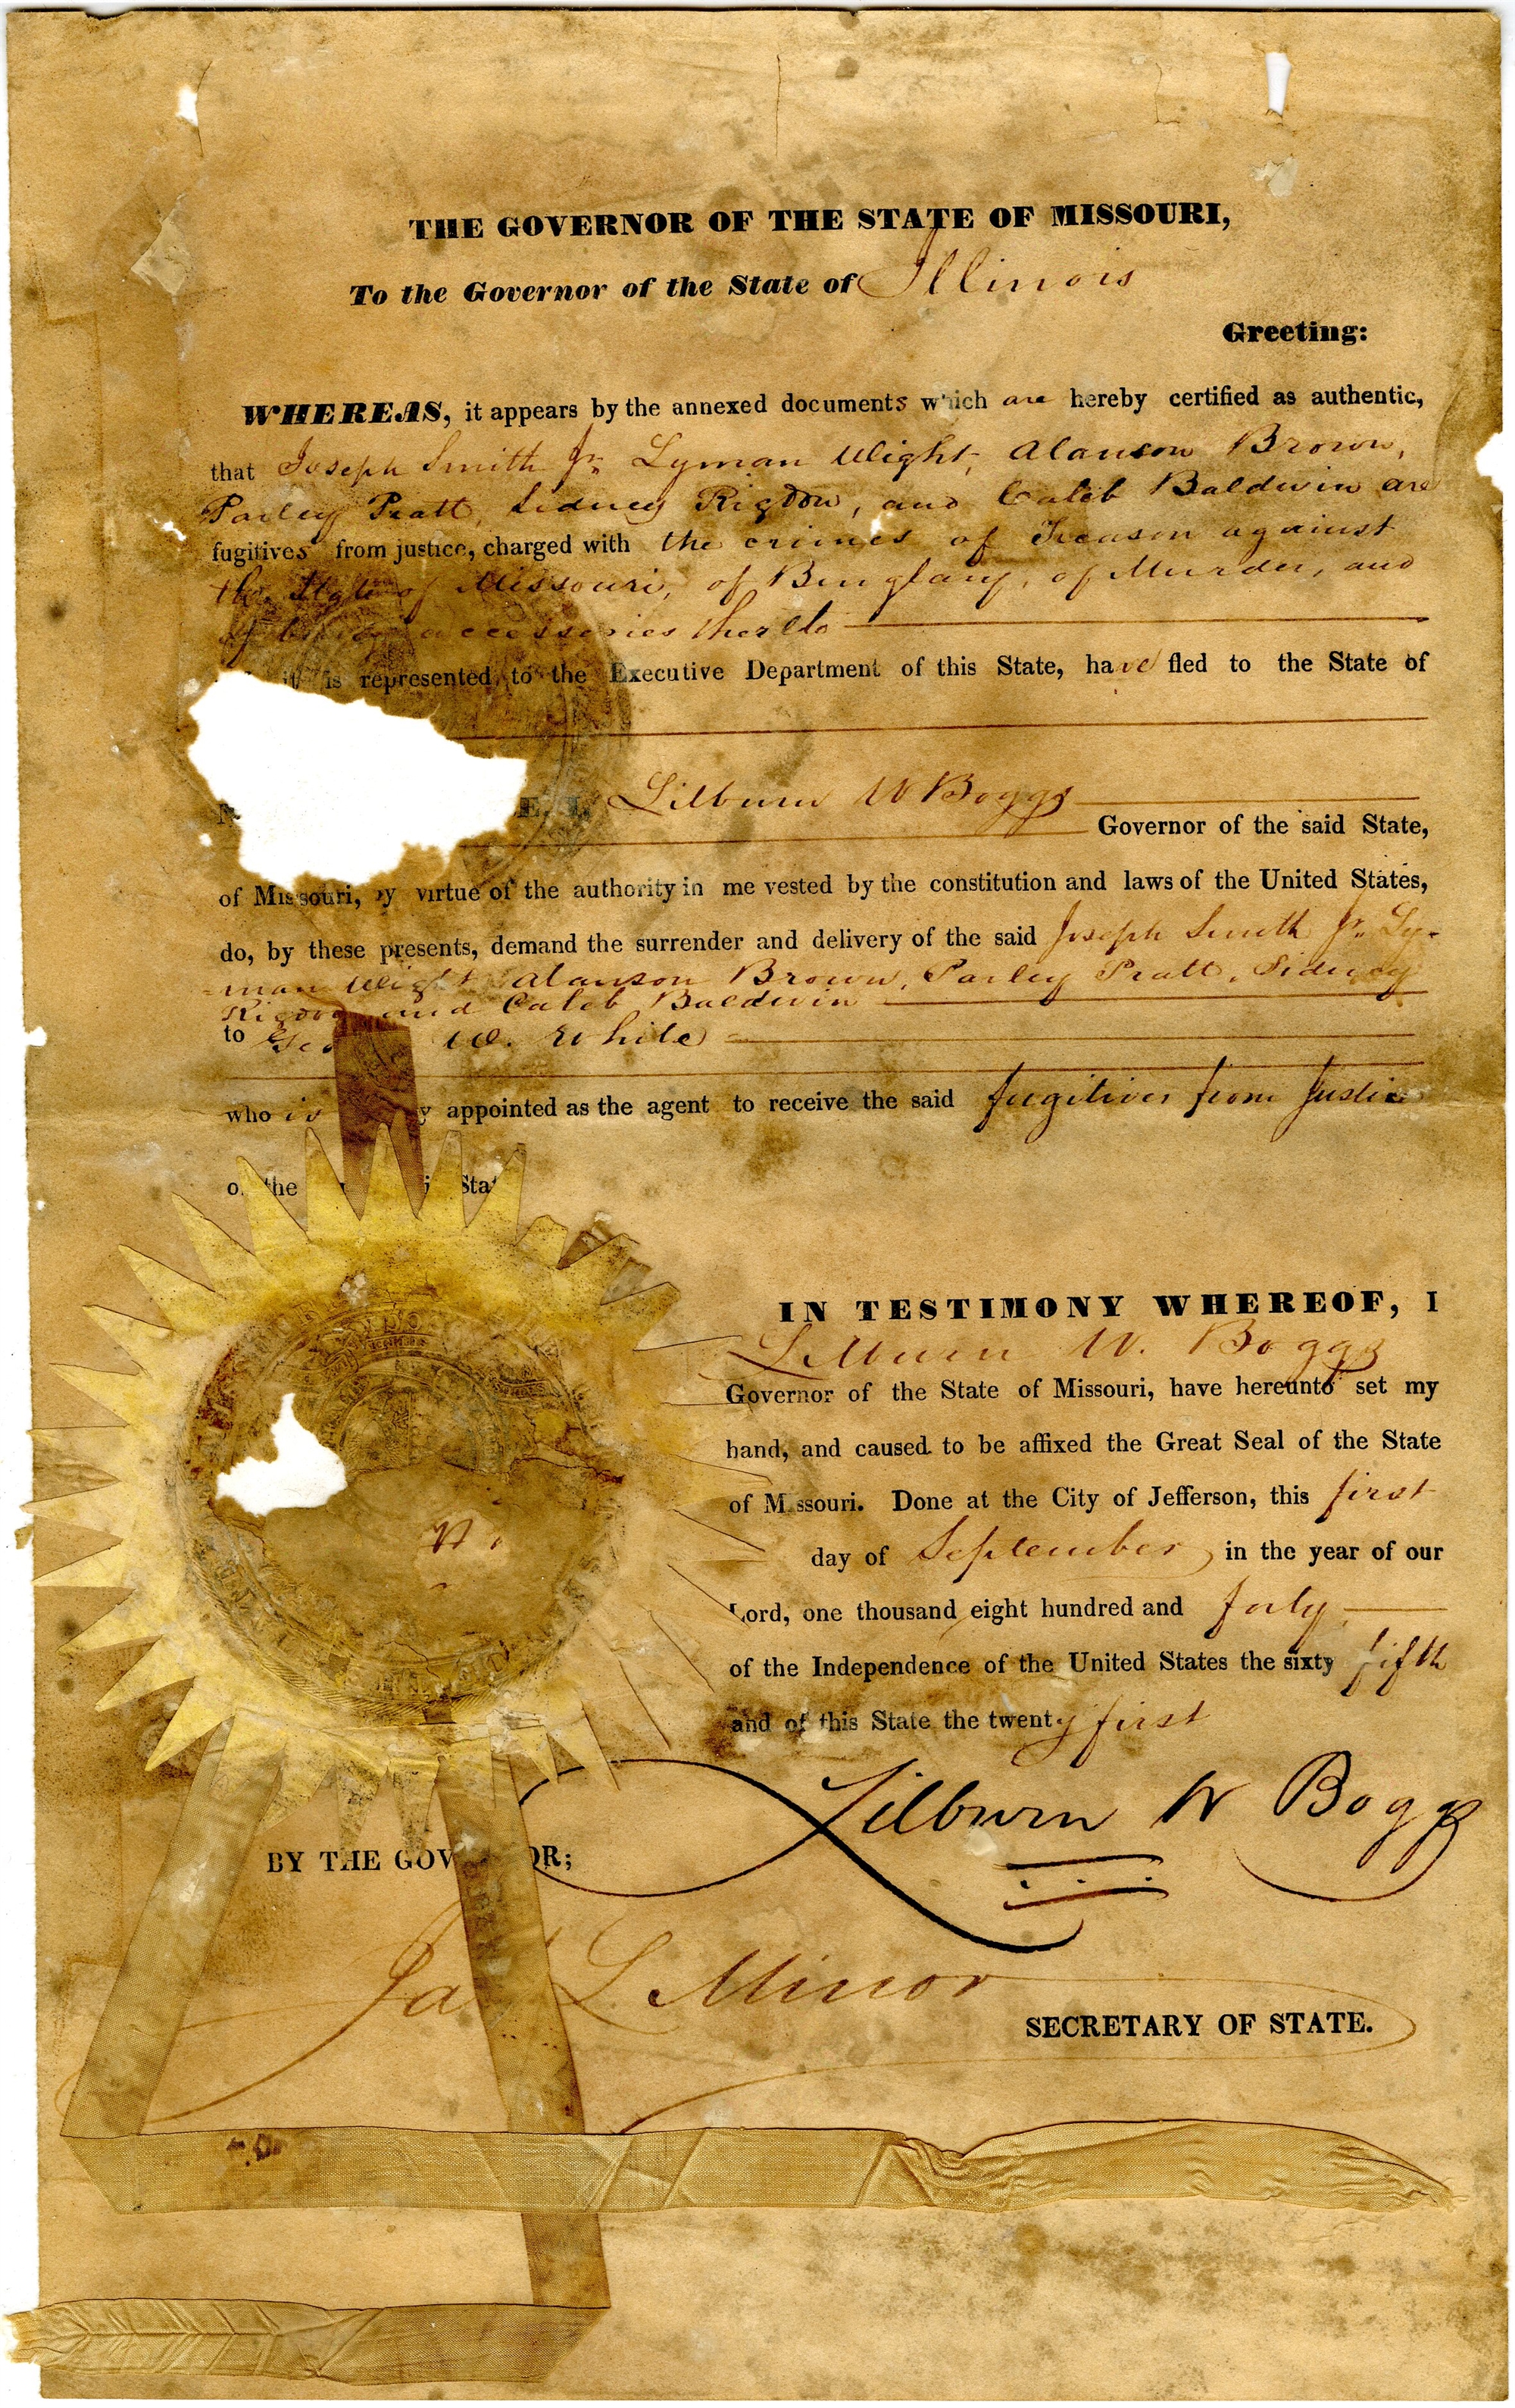 THE GOVERNOR OF THE STATE OF MISSOURI,
To the Governor of the State of Illinois
Greeting:
WHEREAS, it appears by the annexed documents which are hereby certified as authentic,
that Joseph Smith Jr. Lyman Wight, Alanson Brown,
Parley Pratt, Sidney Rigdon, and Caleb Baldwin are
fugitives from justice, charged with the crimes of Treason against
the State of Missouri, of Burglary, of Murder, and
of being accessories thereto
it is represented, to the Executive Department of this State, have fled to the State of
E, I, Lilburn W Boggs
Governor of the said State,
of Missouri, by virtue of the authority in me vested by the constitution and laws of the United States,
do, by these presents, demand the surrender and delivery of the said Joseph Smith Jr. Ly-
-man Wight Alanson Brown, Parley Pratt, Sidney
Rigdon and Caleb Baldwin
to W. White
who is appointed as the agent to receive the said fugitives from Justice
the
IN TESTIMONY WHEREOF, I
Lilburn W. Boggs
Governor of the State of Missouri, have hereunto set my
hand, and caused to be affixed the Great Seal of the State
of Missouri. Done at the City of Jefferson, this first
day of September, in the year of our
Lord, one thousand eight hundred and forty
of the Independence of the United States the sixty fifth
and of this State the twenty first
Lilburn W Boggs
BY THE GOVERNOR;
Ja L Minor
SECRETARY OF STATE.